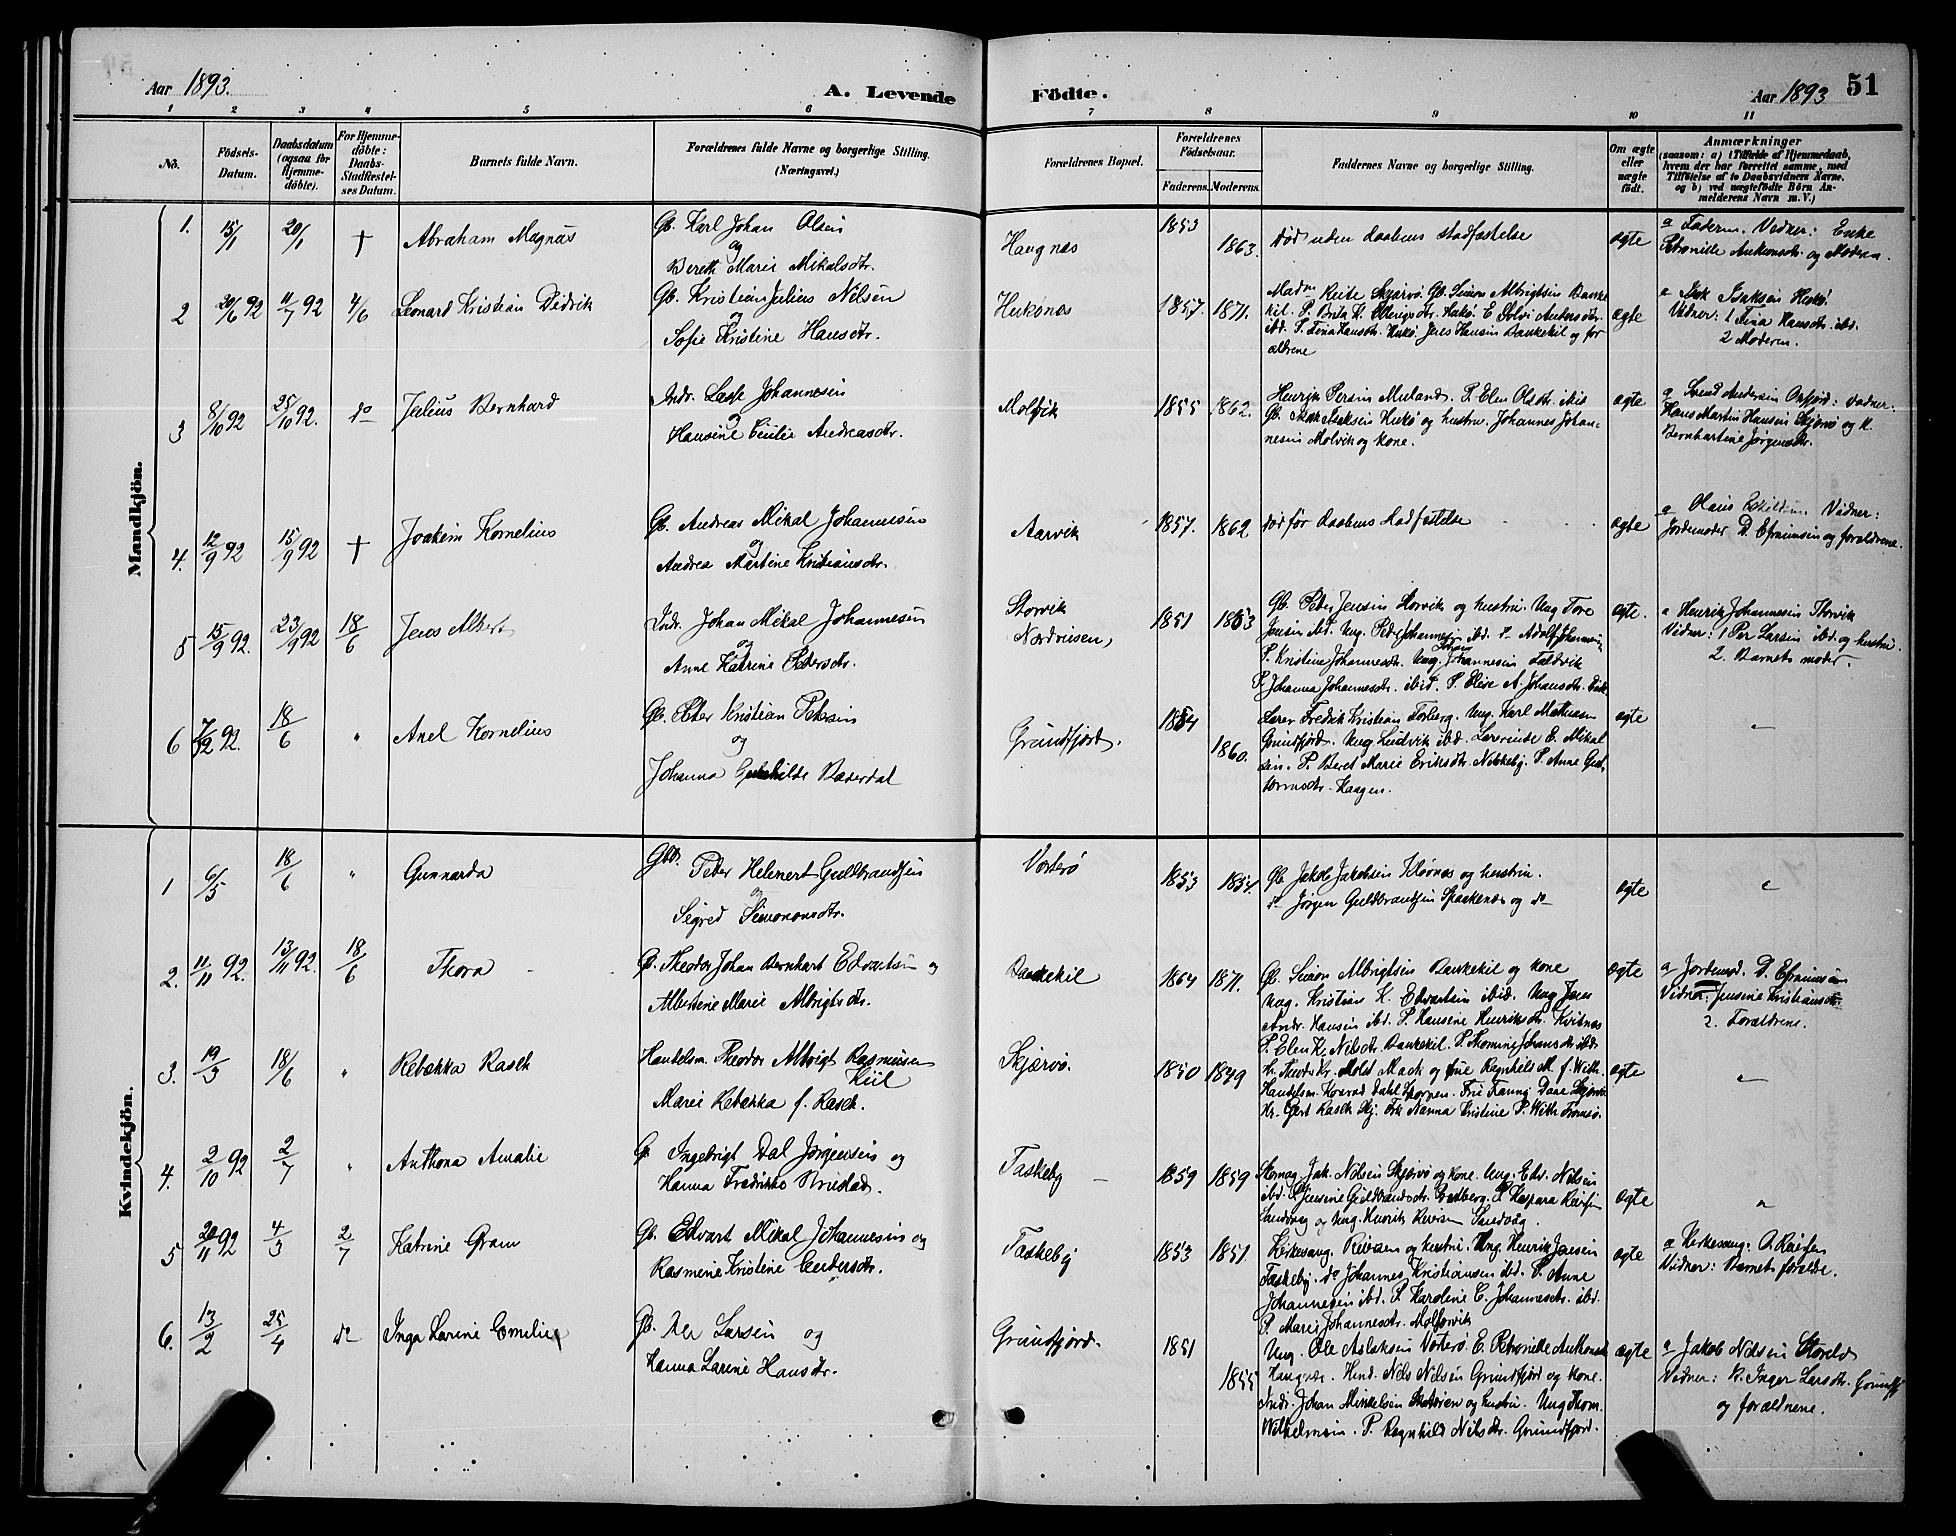 Aar 1893.
A. Levende
Födte.
Aar 1893
51
1 2 3 4 5 6 7 8 9 10 11
No.
Födsels-
Datum.
Daabsdatum
(ogsaa for
Hjemme-
döbte).
For Hjemme-
döbte:
Daabs-
Stadfæstel-
ses Datum.
Barnets fulde Navn.
Forældrenes fulde Navne og borgerlige Stilling.
(Næringsvei.)
Forældrenes Bopæl.
Forældrenes
Födselsaar.
Faderens. Moderens.
Faddernes Navne og borgerlige Stilling.
Om ægte
eller
uægte
födt.
Anmærkninger
(saasom: a) i Tilfælde af Hjemmedaab,
hvem der har forrettet samme, med
Tilföielse af to Daabsvidners Navne,
og b) ved uægtefödte Börn An-
melderens Navn m. V.)
Mandkjön.
1. 15/1 20/1 † Abraham Magnus
Gb. Karl Johan Olsen
og
Bereth Marie Mikalsdtr.
Haugnæs
1853
1863.
Død uden daabens stadfæstelse
ægte
a Faderen. Vidner: Enke
Petronille Antonsdtr. og Moderen.
2 20/6 92 11/7 92 4/6 Leonard Kristian Didrik
Gb. Kristian Julius Nilsen
og
Sofie Kristine Hansdtr.
Hukønæs
1857. 1871.
Mad. Reite Skjervø. Gb. Simon Albrigtsen Bauke
kil. P.
ibd. P. Tina Hansdtr. Hukø. Jens Hansen Baukekil og for
ældrene
ægte
a Isak Isaksen Hukø.
Vidner: 1 Tina Hansdtr. ibd.
2 Moderen.
3 8/10 92 25/10 92. do Julius Bernhard
Indr. Lasse Johannesen
og
Hansine Cecilie Andreasdtr.
Molvik
1855 1862.
Henrik Persen Meiland. P. Elen Olsdtr. ibid
Gb. Isak Isaksen Hukø og hustru. Johannes Johan-
nesen Molvik og kone.
ægte
a Svend Andersen Oxfjord: Vidner:
Hans Martin Hansen Skjervø og K.
Bernhartine Jørgensdtr.
4. 12/9 92 15/9 92 † Joakim Kornelius
Gb. Andreas Mikal Johannesen
og
Andrea Martine Kristiansdtr.
Aarvik
1857. 1862
død før daabens stadfæstelse
ægte
a Olaus Eskildsen Vidner:
Jordemoder D. Efraimsen og forældrene.
5 15/9 92. 23/9 92 18/6 Jens Albert
Indr. Johan Mikal Johannesen
og
Anne Katrine Pedersdtr.
Storvik
Nordreisen,
1851 1853
Gb. Peder Jensen Storvik og hustru. Ung. Tore
Jensen ibd. Ung. Peder Johannesen ibd. P. Adolf Johannesen
P. Kristine Johannesdtr. Ung. Johan Johannesen
P. Johanna Johannesdtr. ibid. P. Elise A. Johansdtr.
ægte.
a Henrik Johannesen Storvik
Vidner: 1 Per Larsen ibd. og hustru.
2. Barnets moder.
6 7/12 92. 18/6 " Axel Kornelius
Gb. Peter Kristian Petersen
og
Johanna Gunhilde Baserdal
Grundfjord.
1854
1860.
Lærer Fredrik Kristian Forberg. Ung. Karl Mathisen
Grundfjord. Ung. Ludvik ibd. Lærerinde E. Mikal
sen. P. Beret Marie Eriksdtr. Nikkeby. P. Anne Gut-
tormsdtr. Haagen.
ægte
"
Kvindekjön.
1 6/5 18/6 " Gunnarda
Gbr. Peder Helmert Guldbrandsen
og
Sigred Simonsdtr.
Vorterø
1853 1854.
Gb. Jakob Jakobsen Kløvnæs og hustru.
do Jørgen Guldbrandsen Spaakenæs og do
ægte
"
2. 11/11 92. 13/11 92. 18/6 Thora
Gb. Theodor Johan Bernhart Edvartsen og
Albertine Marie Albrigtsdtr.
Baukekil
1864 1871.
Gb. Simon Albrigtsen Baukekil og kone
Ung. Kristian K. Edvartsen ibid. Ung. Jens
Andr. Hansen ibd. P. Hansine Henriksdtr. Kvitnæs
P. Elen K. Nilsdtr. Baukekil. P. Thomine Johansdtr. ibd.
ægte
a Jordemod. D. Efraimsen
Vidner: Jensine Kristiansdtr.
2. Forældrene.
3. 19/3 18/6 " Rebekka Rasch
Handelsm. Theodor Albrigt Rasmussen
Kiil
Marie Rebekka f. Rasch.
Skjærvø.
1850 1849
Hr. Theodor Kr. Mold Mack og frue Ragnhild M. f. With.
Handelsm. Konrad Dahl Thorgen. Frk Fanny Daae Skjervø
Hr. Gert Rasch Skj. Frk Nanna Kristine P. With Tromsø.
ægte
"
4. 2/10 92 2/7 " Anthona Amalie
Gb. Ingebrigt Dal Jørgensen og
Hanna Fredrikke
Taskeby
1859 1859
Jak. Nilsen Skjervø og kone. Ung. Edv. Nilsen
ibd. P. Jensine Guldbrandsdtr. P. Kaspara Reiersen
Sandvaag og Ung. Henrik Reiersen Sandvaag.
ægte
"
5 20/11 92 4/3 2/7 Katrine Gram
Gb. Edvart Mikal Johannesen og
Rasmine Kristine Endersdtr.
Taskeby
1853 1851.
Kirkesang. Reiersen og hustru. Ung. Henrik Jensen
Taskeby. do Johannes Kristiansen ibd. P. Anne
Johannesen ibd. P. Karoline C. Johannesdtr. ibd.
P. Marie Johannesdtr. Molforvik
ægte
a Kirkesang: O. Reiersen
Vidner: Barnets forældre.
6. 13/2 25/4 do Inga Larine Emilie
Gb. Per Larsen og
Hanna Larine Hansdtr.
Grundfjord.
1851
1855
Ung. Ole Aslaksen Vorterø. E. Petronille Antonsdtr.
Haugnæs. Hand. Nils Nilsen Grundfjord og kone.
Indr. Johan Mikkelsen og hustru. Ung Thom.
Wilhelmsen. P. Ragnhild Nilsdtr. Grundfjord.
ægte
a Jakob Nilsen
Vidner: K. Inger Larsdtr. Grundfj
og forældrene.